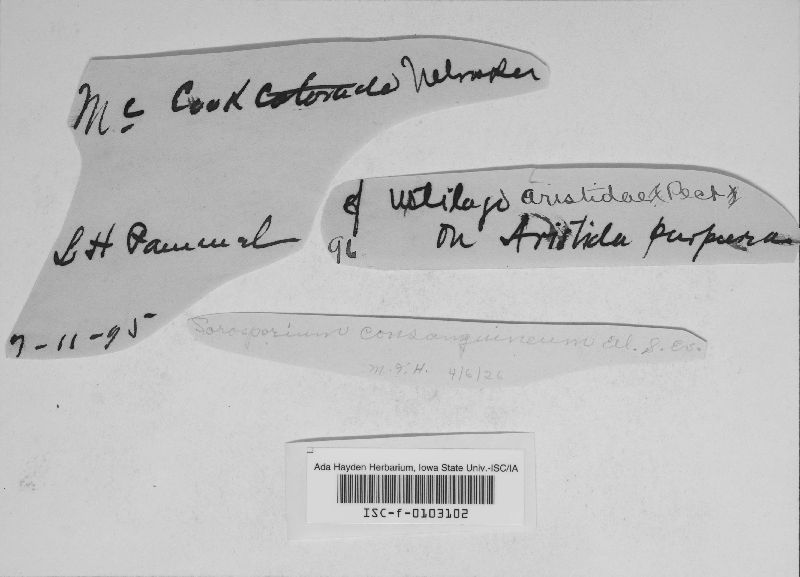 Mc Cook Colorado Nebraska
L H Pammel
7-11-95
cf Ustilago aristidae (Peck)
96 on Aristida purpurea
Sorosporium consanguineum Ell. & Ev.
M.J.H. 4/6/26
Ada Hayden Herbarium, Iowa State Univ.-ISC/IA
ISC-f-0103102